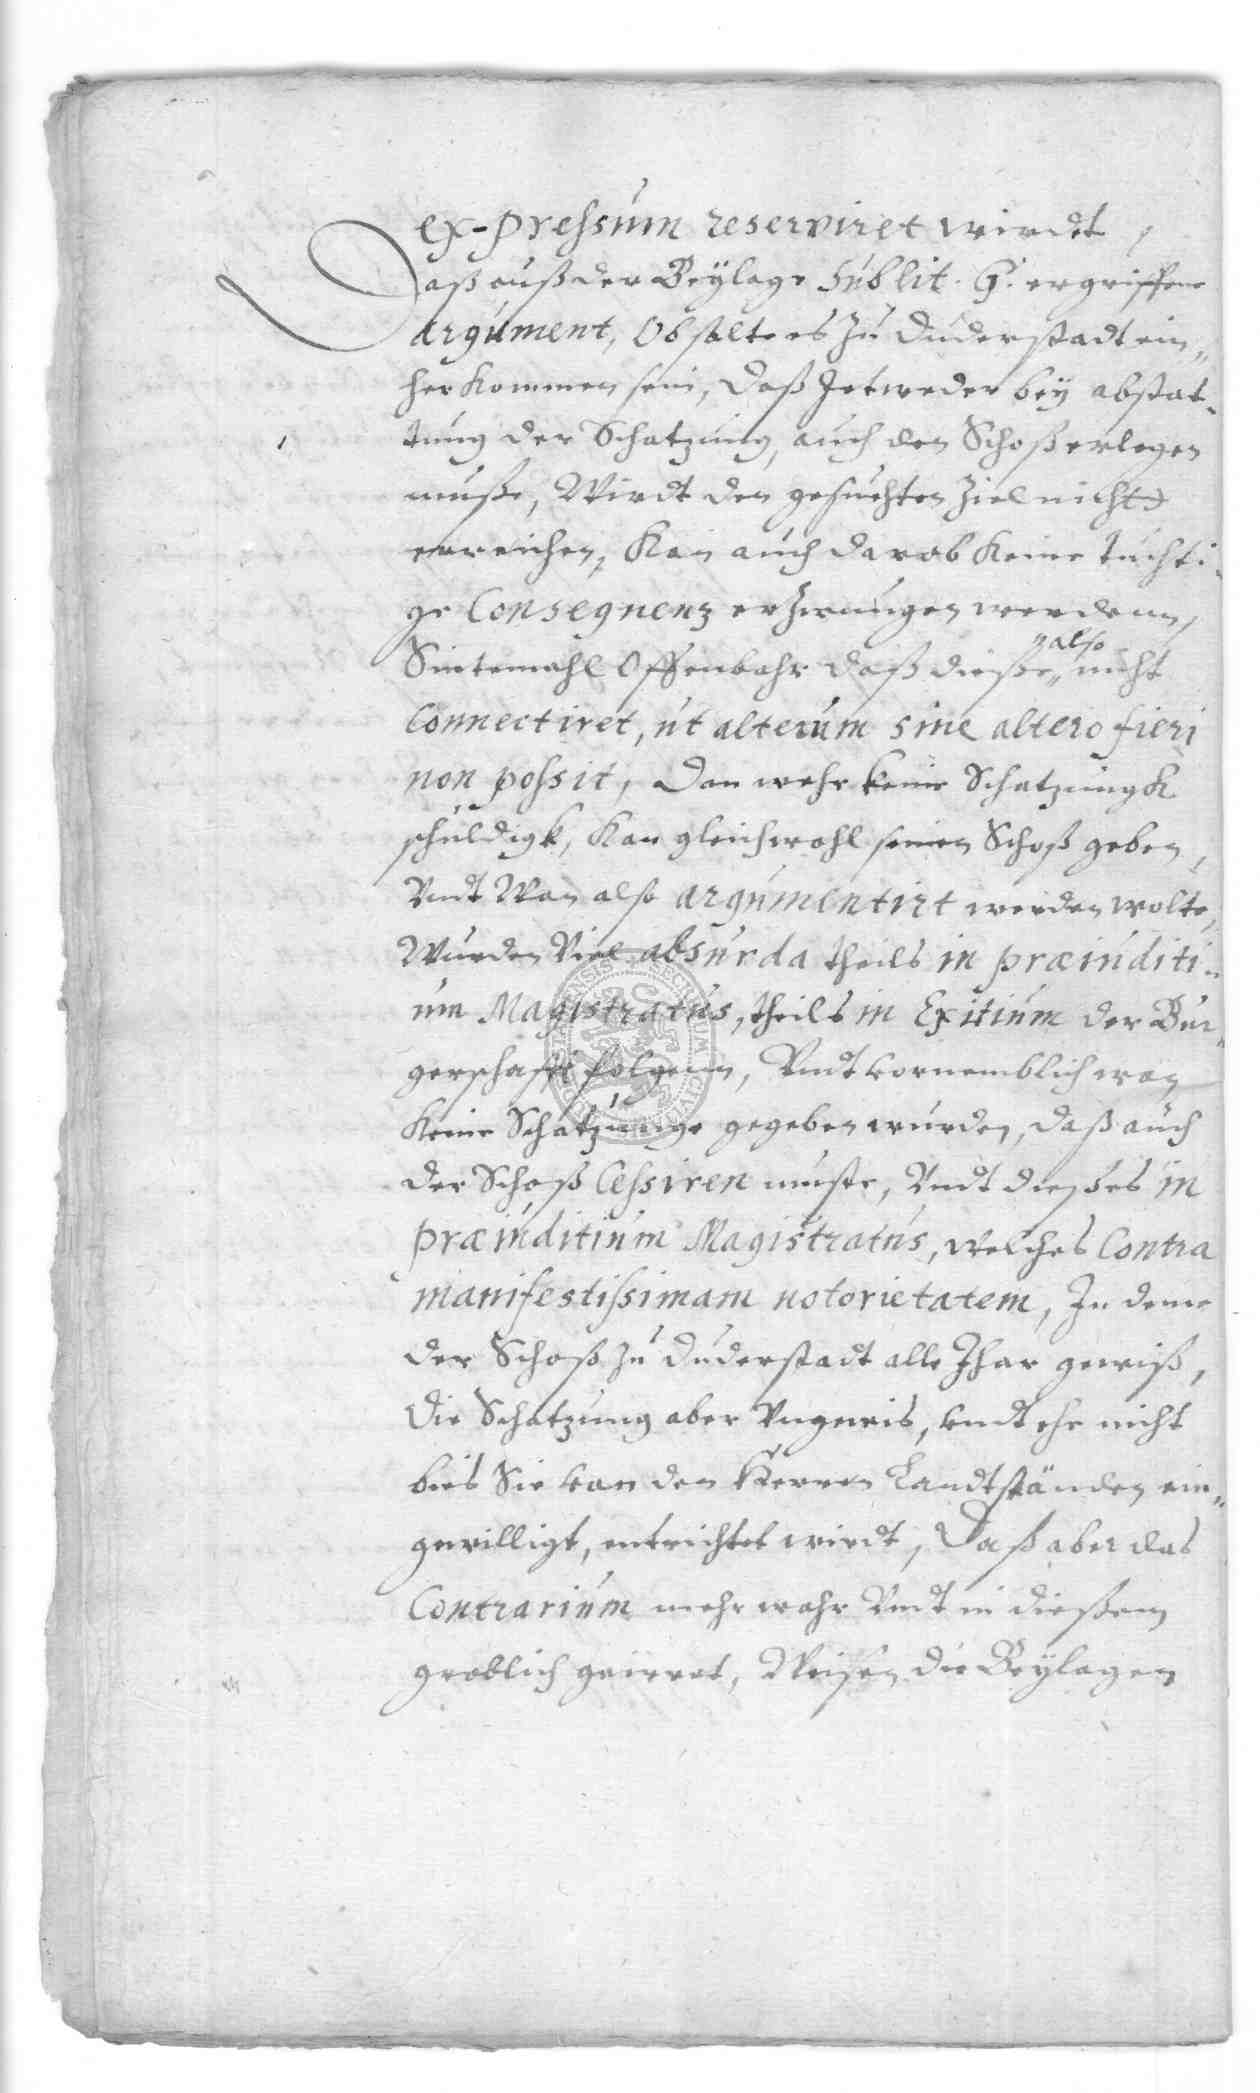 ex-pressum reserviret wirdt,
Daß auß der Beylage sub lit. G. ergriffene
argument, Ob solte es zu Duderstadt ein„
herkommen sein, Daß Jetweder bey abstat„
tung der Schatzung, auch den Schoß erlegen
muße, Wirdt den gesuchten Ziel nicht
erreichen, Kan auch darob keine tuchti„
ge Consequenz erzwungen werdenn,
Sintemahl Offenbahr daß dieße„ nicht
also
Connectiret, ut alterum sine altero fieri
non possit, Dan wehr keine Schatzungk
schuldigk, Kan gleichwohl seinen Schoß geben,
Undt Wan also argumentirt werden wolte,
Wurden Viel absurda theils in præiuditi„
um Magistratus, theils in Exitium der Bur„
gerschafft folgenn, Undt vornemblich wan
keine Schatzunge gegeben wurden, daß auch
der Schoß Cessiren muste, Undt dießes in
præiuditium Magistratus, welches Contra
manifestissimam notorietatem, In deme
der Schoß zu Duderstadt alle Jhar gewiß,
Die Schatzung aber Ungewis, vndt ehe nicht
bies Sie von den Herren Landtständen ein„
gewilligt, entrichtet wirdt, Daß aber das
Contrarium mehr wahr Undt in dießem
groblich geirret, Weisen die Beylagen